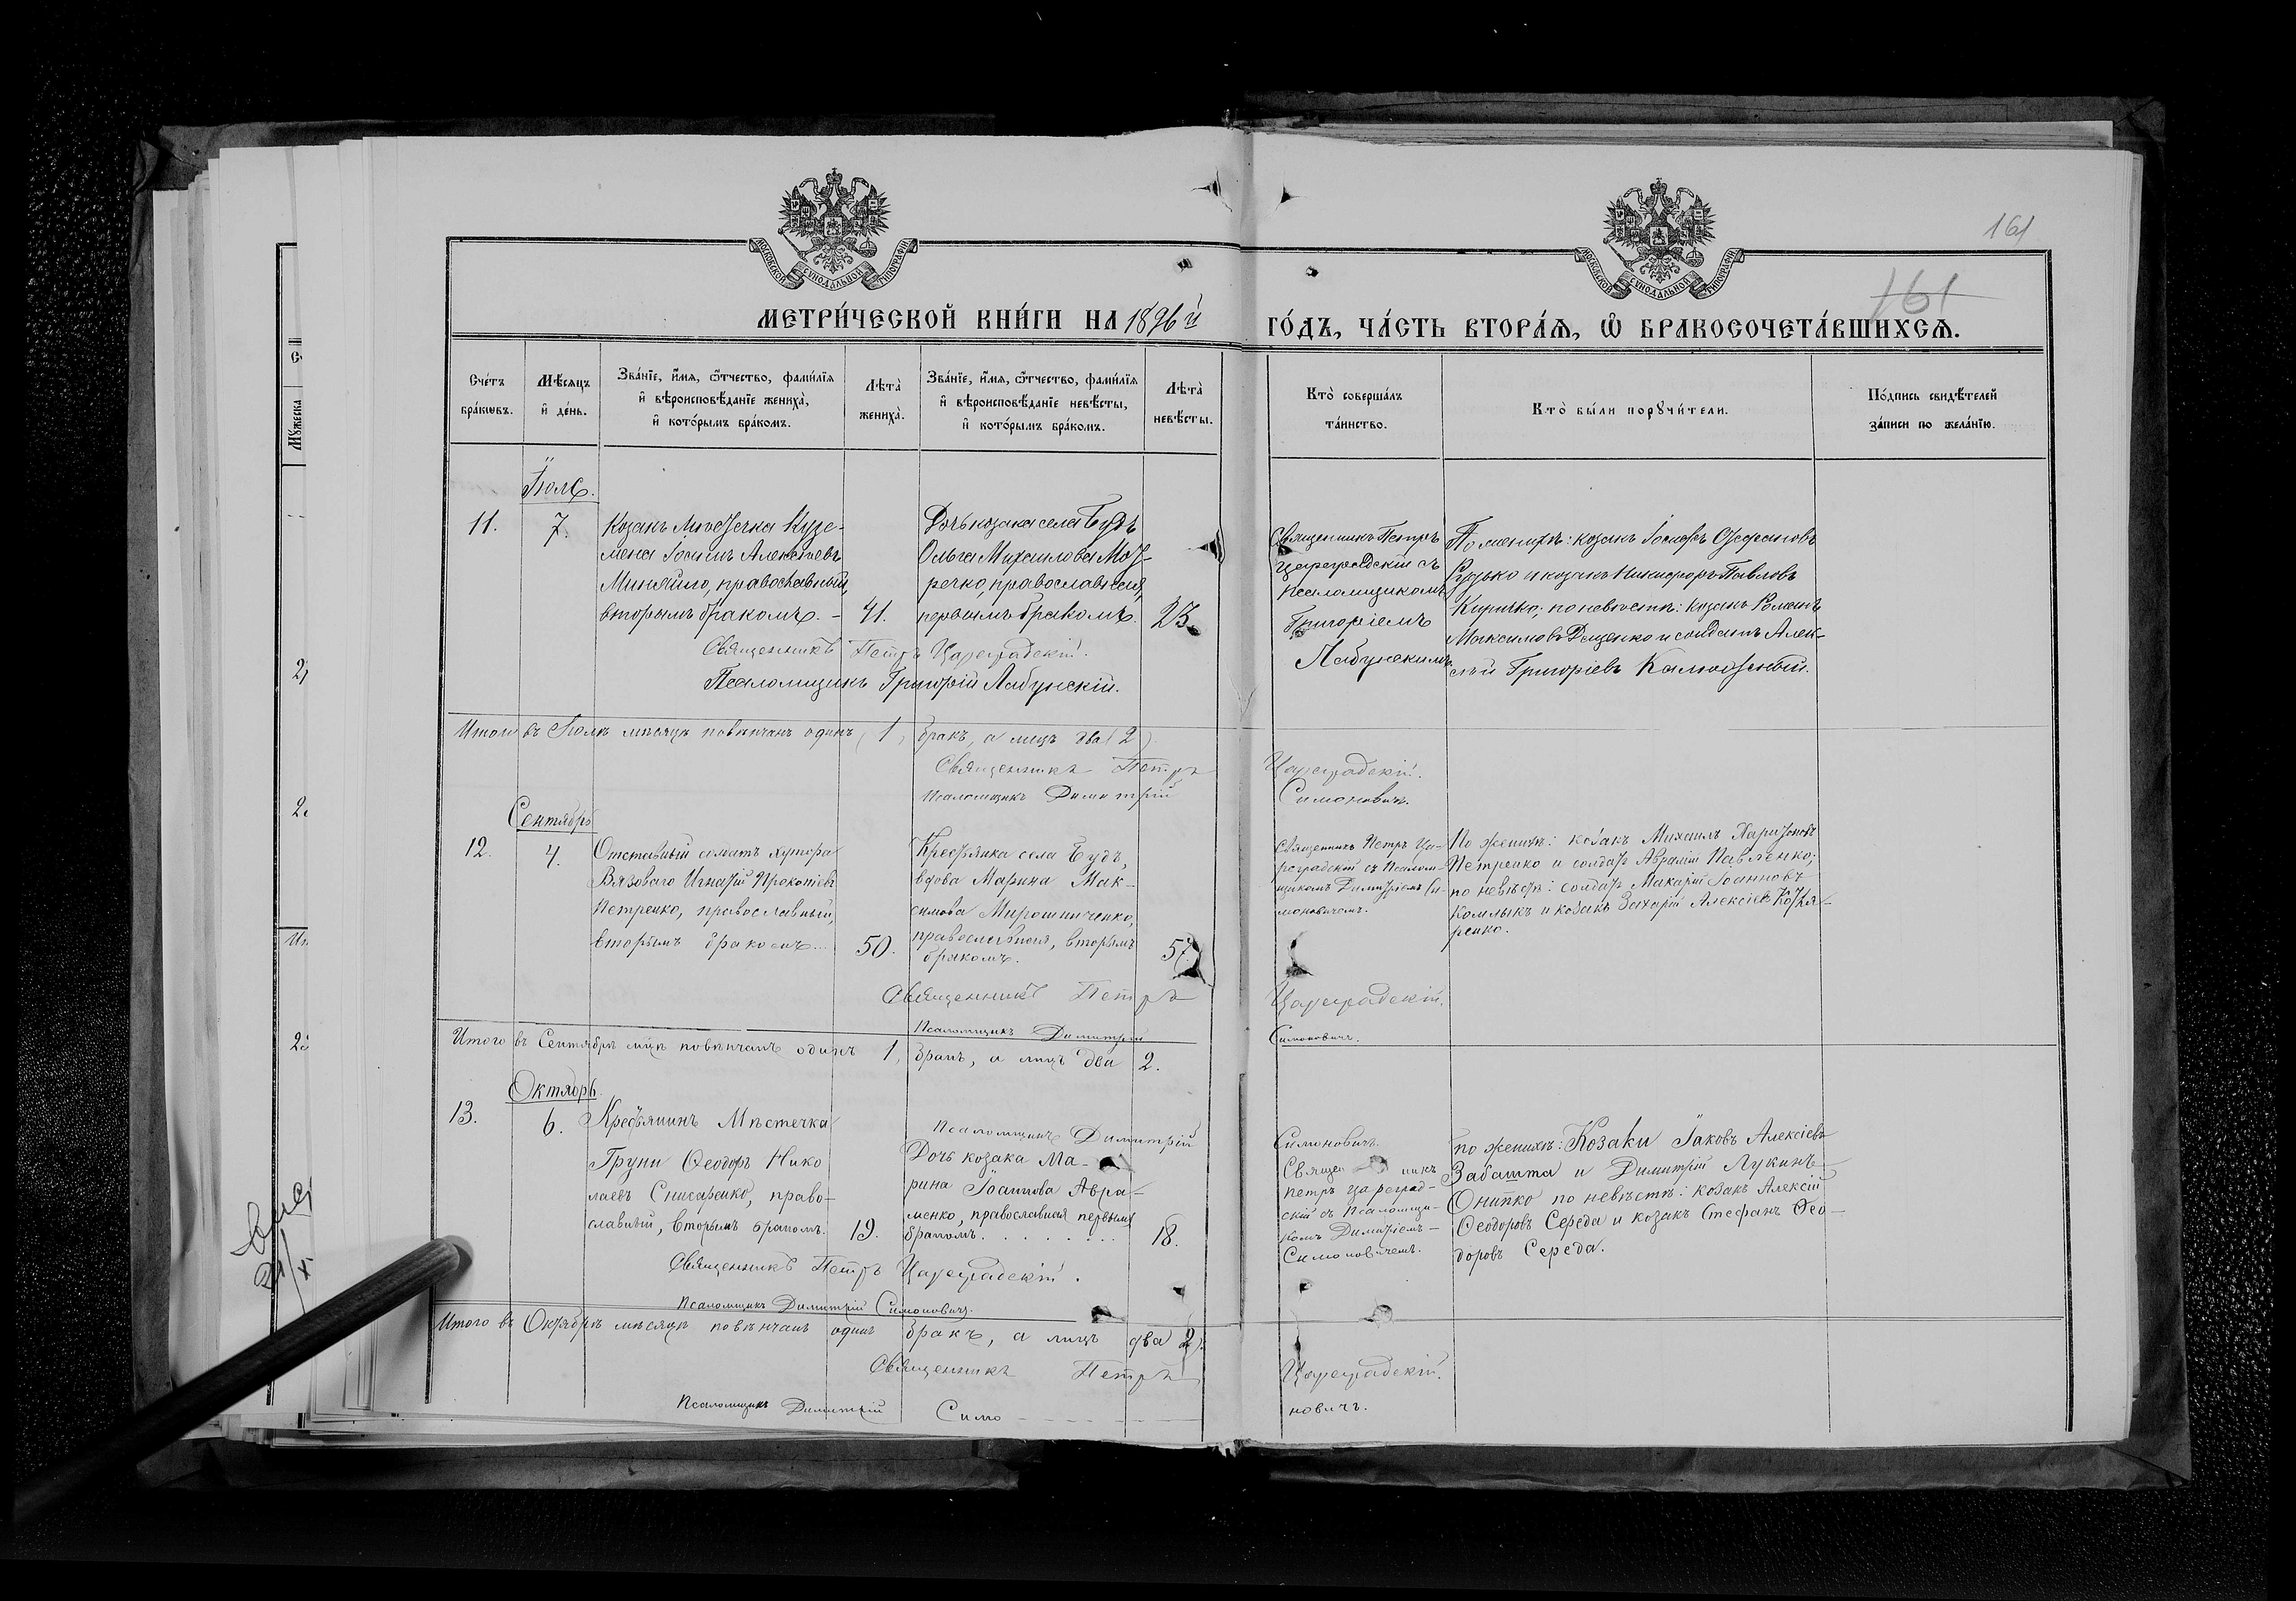 МОСКОВСКОЙ СУНОДАЛЬНОЙ ТИПОГРАФІИ
МОСКОВСКОЙ СУНОДАЛЬНОЙ ТИПОГРАФІИ
161
161
МЕТРИ́ЧЕСКОЙ КНИ́ГИ НА 1896й
ГО́ДЪ, ЧА́СТЬ ВТОРА́Я, Ѡ БРАКОСОЧЕТА́ВШИХСЯ.
Сче́тъ
бра́кѡвъ.
Мѣ́сяцъ
и҆ де́нь.
Зва́нїе, и҆́мя, ѻ҆́тчество, фамѝлїя
и҆ вѣроисповѣ́данїе жениха̀,
и҆ кото́рымъ бра́комъ.
Лѣта̀
жениха̀.
Зва́нїе, и҆́мя, ѻ҆́тчество, фамѝлїя
и҆ вѣроисповѣ́данїе невѣ́сты,
и҆ кото́рымъ бра́комъ.
Лѣта̀
невѣ́сты.
Кто̀ соверша́лъ
та́инство.
Кто̀ бы́ли порꙋчи́тели.
По́дпись свидѣ́телей
за́писи по жела́нїю.
Іюль.
11.
7.
Козакъ мѣстечка Кузе-
мена Іоакимъ Алексіевъ
Миняйло, православный,
вторымъ бракомъ. -
41.
Дочь козака села Будъ
Ольга Михаилова Мот-
речко, православная,
первымъ бракомъ.
23.
Священникъ Петръ
Цареградскій съ
псаломщикомъ
Григоріемъ
Лабунскимъ.
По женихѣ: козакъ Іосифъ Стефановъ
и козакъ Никифоръ Павловъ
Киричко; по невѣстѣ: козакъ Романъ
Максимовъ Дященко и солдатъ Алек-
сѣй Григоріевъ Калюжный.
Священникъ Петръ Цареградскій.
Псаломщикъ Григорій Лабунскій.
Итого въ Іюлѣ мѣсяцѣ повѣнчанъ одинъ (1) бракъ, а лицъ два (2).
Священникъ Петръ Цареградскій.
Псаломщикъ Димитрій Симоновичъ.
Сентябрь
12.
4.
Отставный солдатъ хутора
Вязоваго Игнатій Прокопіевъ
Петренко, православный,
вторымъ бракомъ...
50.
Крестьянка села Будъ,
вдова Марина Мак-
симова Мирошниченко,
православная, вторымъ
бракомъ.
57.
Священникъ Петръ Ца-
реградскій съ Псалом-
щикомъ Димитріемъ Си-
моновичемъ.
По женихѣ: козакъ Михаилъ Харитоновъ
Петренко и солдатъ Аврамій Павленко;
по невѣстѣ: солдатъ Макарій Іоанновъ
Комлыкъ и козакъ Захарій Алексіевъ Котля-
ренко.
Священникъ Петръ Цареградскій.
Псаломщикъ Димитрій Симоновичъ.
Итого въ Сентябрѣ мѣцѣ повѣнчанъ одинъ 1, бракъ, а лицъ два 2.
Октябрь.
13.
6.
Псаломщикъ Димитрій Симоновичъ.
Крестьянинъ Мѣстечка
Груни Ѳеодоръ Нико
лаевъ Снисаренко, право-
славный, вторымъ бракомъ.
19.
Дочь козака Ма-
рина Іоаннова Авра-
менко, православная первымъ
бракомъ. . . . . . . .
18.
Священникъ
Петръ Цареград-
скій съ Псаломщи-
комъ Димитріемъ -
Симоновичемъ.
по женихѣ: Козаки Іаковъ Алексіевъ
Забашта и Димитрій Лукинъ
Онипко по невѣстѣ: козакъ Алексій
Ѳеодоровъ Середа и козакъ Стефанъ Ѳео-
доровъ Середа.
Священникъ Петръ Цареградскій.
Псаломщикъ Димитрій Симоновичъ.
Итого въ Октябрѣ мѣсяцѣ повѣнчанъ одинъ бракъ, а лицъ два 2).
Священникъ Петръ Цареградскій.
Псаломщикъ Димитрій Симо - - - новичъ.